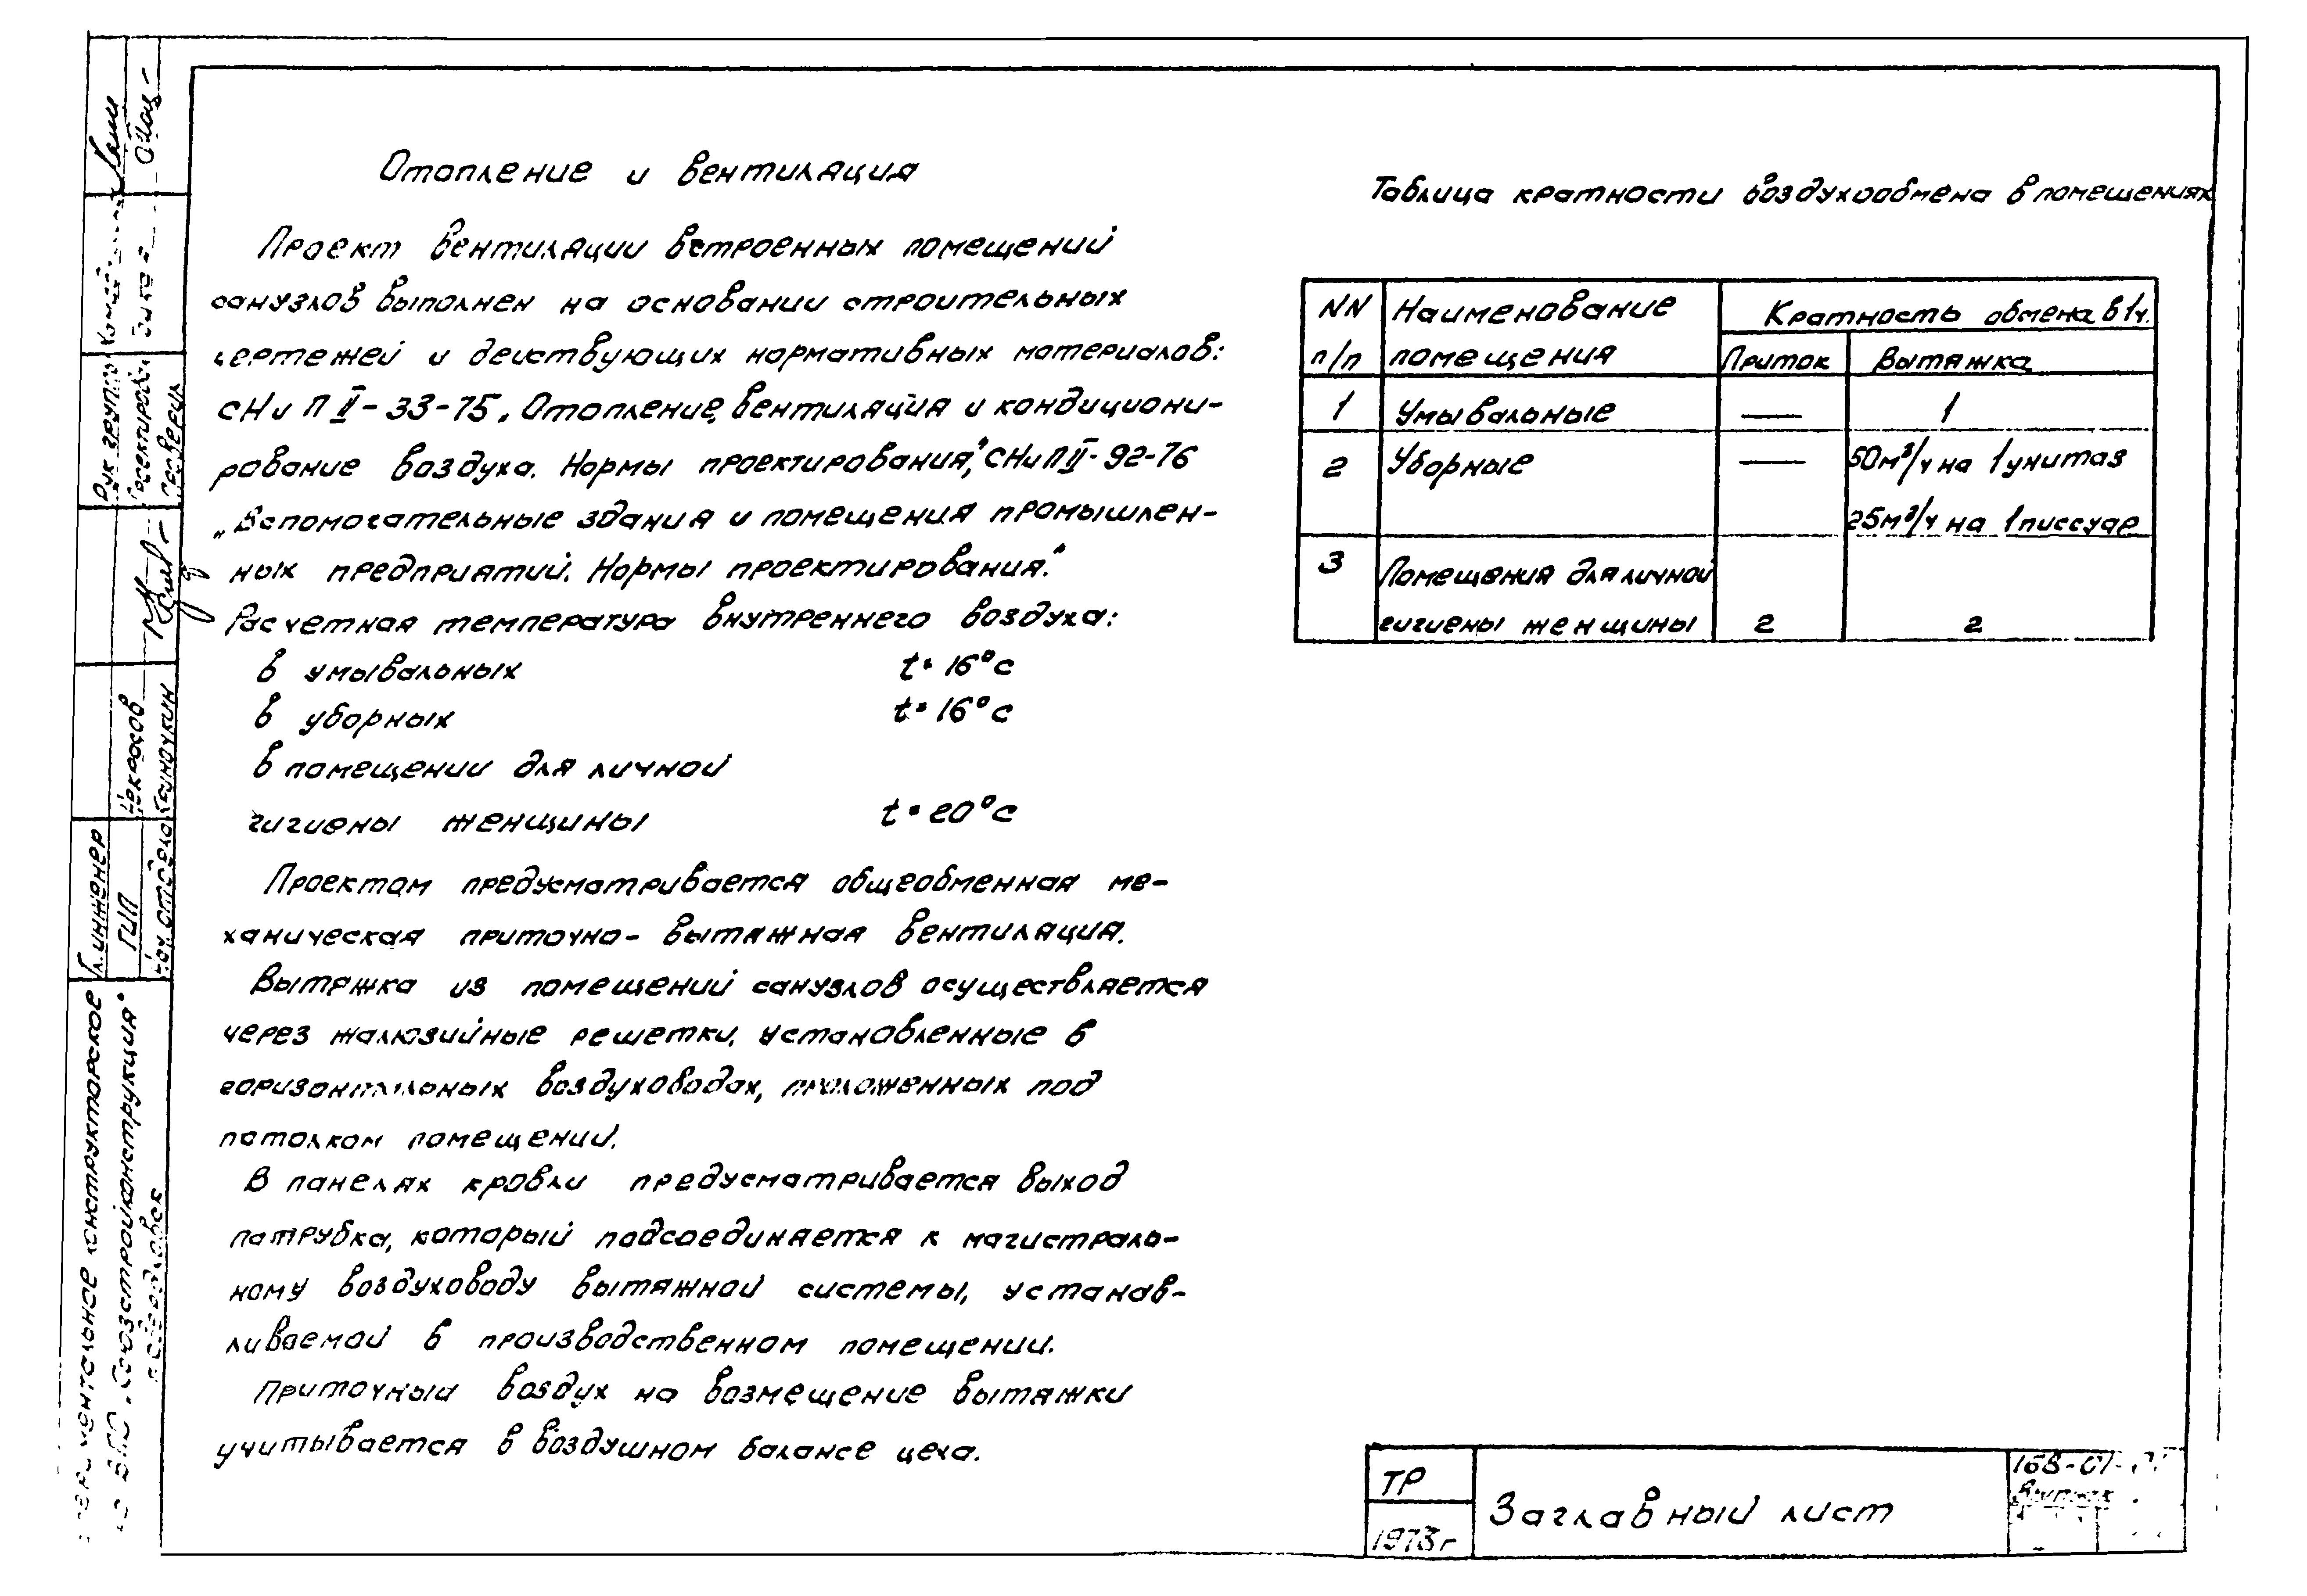 Отопление и вентиляция
Проект вентиляции встроенных помещений
санузлов выполнен на основании строительных
чертежей и действующих нормативных материалов:
СНиП II-33-75 „Отопление, вентиляция и кондициони-
рование воздуха. Нормы проектирования“, СНиП II-92-76
„Вспомогательные здания и помещения промышлен-
ных предприятий. Нормы проектирования.“
Расчетная температура внутреннего воздуха:
в умывальных t=16°с
в уборных t=16°с
в помещении для личной
гигиены женщины t=20°с
Проектом предусматривается общеобменная ме-
ханическая приточно-вытяжная вентиляция.
Вытяжка из помещений санузлов осуществляется
через жалюзийные решетки, установленные в
горизонтальных воздуховодах, проложенных под
потолком помещений.
В панелях кровли предусматривается выход
патрубка, который подсоединяется к магистраль-
ному воздуховоду вытяжной системы, устанав-
ливаемой в производственном помещении.
Приточный воздух на возмещение вытяжки
учитывается в воздушном балансе цеха.
Таблица кратности воздухообмена в помещениях
NN п/п
Наименование помещения
Кратность обмена в 1ч.
Приток
Вытяжка
1 Умывальные — 1
2 Уборные — 50м³/ч на 1 унитаз
25м³/ч на 1 писсуар
3 Помещения для личной
гигиены женщины 2 2
ТР
1973г
Заглавный лист
168-01-
Выпуск
Рук группы
Гл.инженер
ГИП
Некрасов
Нач отдела
конструкторское